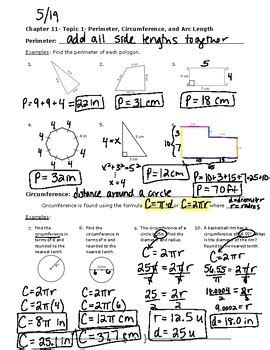 5/19
Chapter 11- Topic 1- Perimeter, Circumference, and Arc Length
Perimeter: add all side lengths together
Examples: Find the perimeter of each polygon.
1. 2. 3. 5
P=9+9+4=22in P=31cm P=18cm
4. 5. 6.
4=x
x²+3²=5²
x=4
P=32in P=12cm P=10+3+15+
P=70ft
Circumference: distance around a circle
Circumference is found using the formula C=πd C=2πr where
d=diameter
r=radius
Examples:
7. Find the circumference in terms of π and rounded to the nearest tenth
8. Find the circumference in terms of π and to the nearest tenth
9. The circumference of a circle is Find the diameter and radius.
10. A basketball rim has a circumference of What is the diameter of the rim? Round to the nearest tenth
C=2πr C=2πr C=2πr C=2πr
C=2π(4) C=2π(6) 25π=2πr 56.55=2πr
C=8π in C=12π cm 25=2r 18.0004=2r
9.0002=r
C=25.1 in C=37.7 cm r=12.5 u
d=25 u d=18.0 in